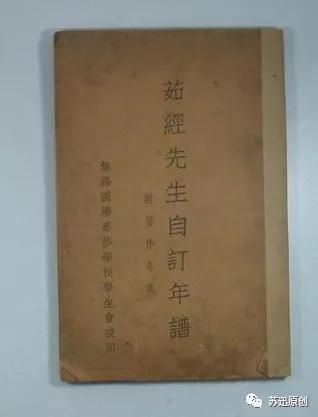 茹經先生自訂年譜
附著作年表
無錫國學專修學校學生會校印
苏迅原创